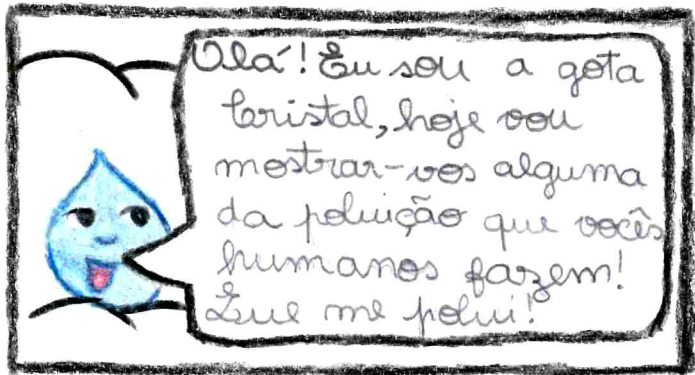 Olá! Eu sou a gota
Cristal, hoje vou
mostrar-vos alguma
da poluição que vocês
humanos fazem!
Que me polui!